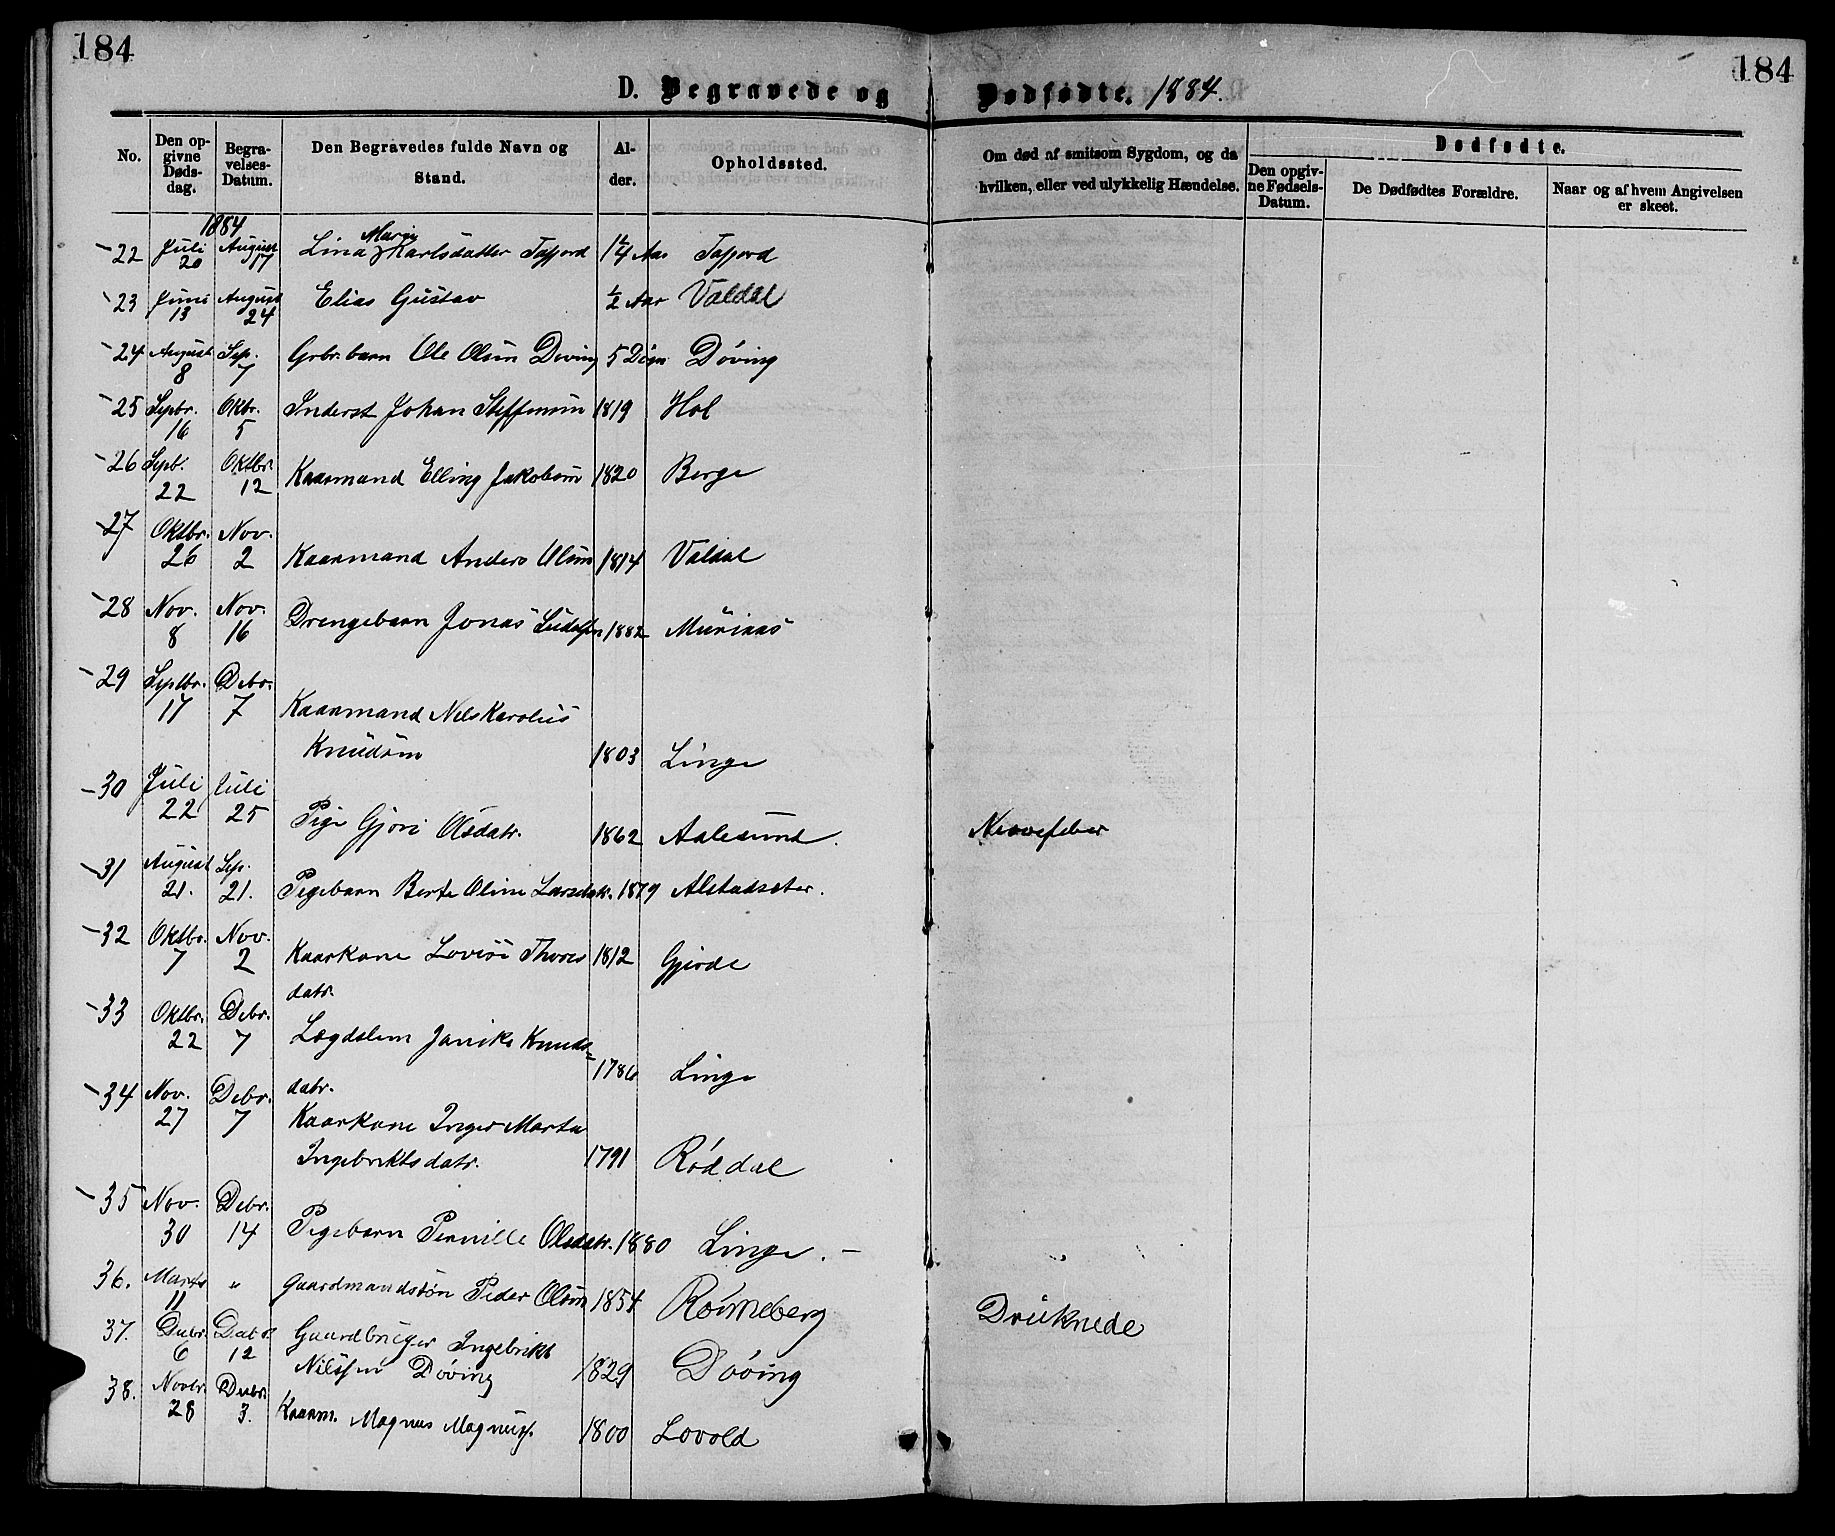 184
184
D. Begravede og Dødfødte. 1884.
No.
Den opgivne Dødsdag.
Begravelses-Datum.
Den Begravedes fulde Navn og Stand.
Alder.
Opholdssted.
Om død af smitsom Sygdom, og da hvilken, eller ved ulykkelig Hændelse.
Dødfødte.
Den opgivne Fødsels-Datum.
De Dødfødtes Forældre.
Naar og af hvem Angivelsen er skeet.
1884
22 Juli 20 August 17 Lina Marie Karlsdatter Tafjord 1 1/4 Aar Tafjord
23 Juni 13 August 24 Elias Gustav 1/2 Aar Valdal
24 August 8 Sep. 7 Gbr. barn Ole Olsen Døving 5 Døgn Døving
25 Sepbr. 16 Oktbr. 5 Inderst Johan Steffensen 1819 Hol
26 Sepb. 22 Oktbr. 12 Kaarmand Elling Jakobsen 1820 Berge
27 Oktbr. 26 Nov. 2 Kaarmand Anders Olsen 1814 Valdal
28 Nov. 8 Nov. 16 Drengebarn Jonas 1882 Muriaas
29 Septbr. 17 Debr. 7 Kaarmand Nils Karolus
Knudsen 1803 Linge
30 Juli 22 Juli 25 Pige Gjøri Olsdatr. 1862 Aalesund. Nervefeber
31 August 21. Sep. 21. Pigebarn Berte Oline Larsdatr. 1879 Alstadseter.
32 Oktbr. 7 Nov. 2 Kaarkone Lovise Thores 1812 Gjerde
datr.
33 Oktbr. 22 Debr. 7 Lægdslem Janike Knuds-
datr. 1786 Linge
34 Nov. 27 Debr. 7 Kaarkone Inger Marta
Ingebriktsdatr. 1791 Røddal
35 Nov. 30 Debr. 14 Pigebarn Pernille Olsdatr. 1880 Linge. –
36. Marts 11 " Gaardmandssøn Peder Olsen 1854 Rønneberg Druknede
37. Debr. 6 Debr. 12 Gaardbruger Ingebrikt
Nilssen Døving 1829 Døving
38. Novbr. 28 Debr. 3. Kaarm. Magnus Magnus. 1800 Lovold